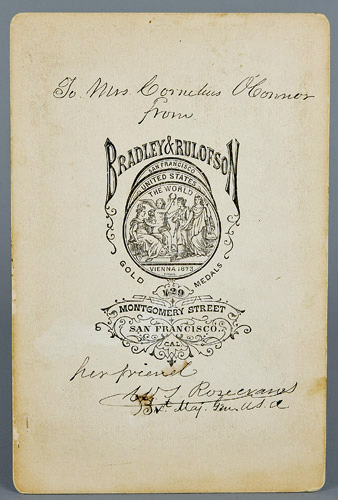 To Mrs. Cornelius O'Connor
from
BRADLEY & RULOFSON
SAN FRANCISCO
UNITED STATES
THE WORLD
VIENNA 1873
GOLD MEDALS
429
MONTGOMERY STREET
SAN FRANCISCO.
CAL.
her friend
W S Rosecrans
Bvt Maj. Gen. U.S.A